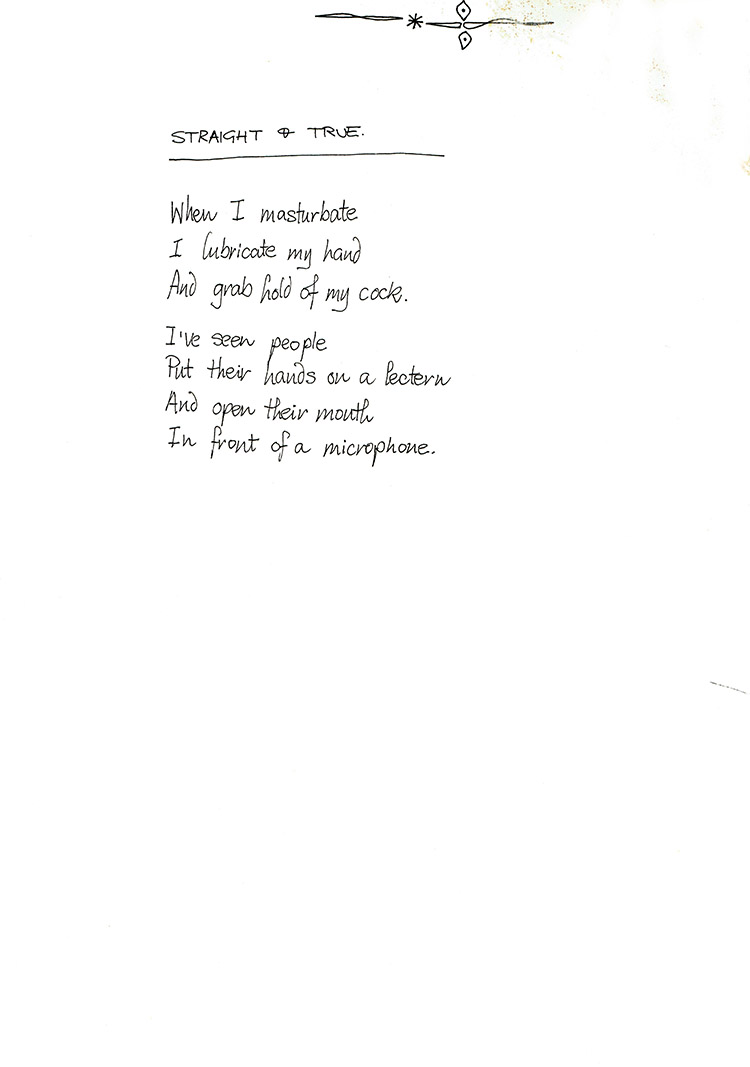 STRAIGHT & TRUE.
When I masturbate
I lubricate my hand
And grab hold of my cock.
I've seen people
Put their hands on a lectern
And open their mouth
In front of a microphone.